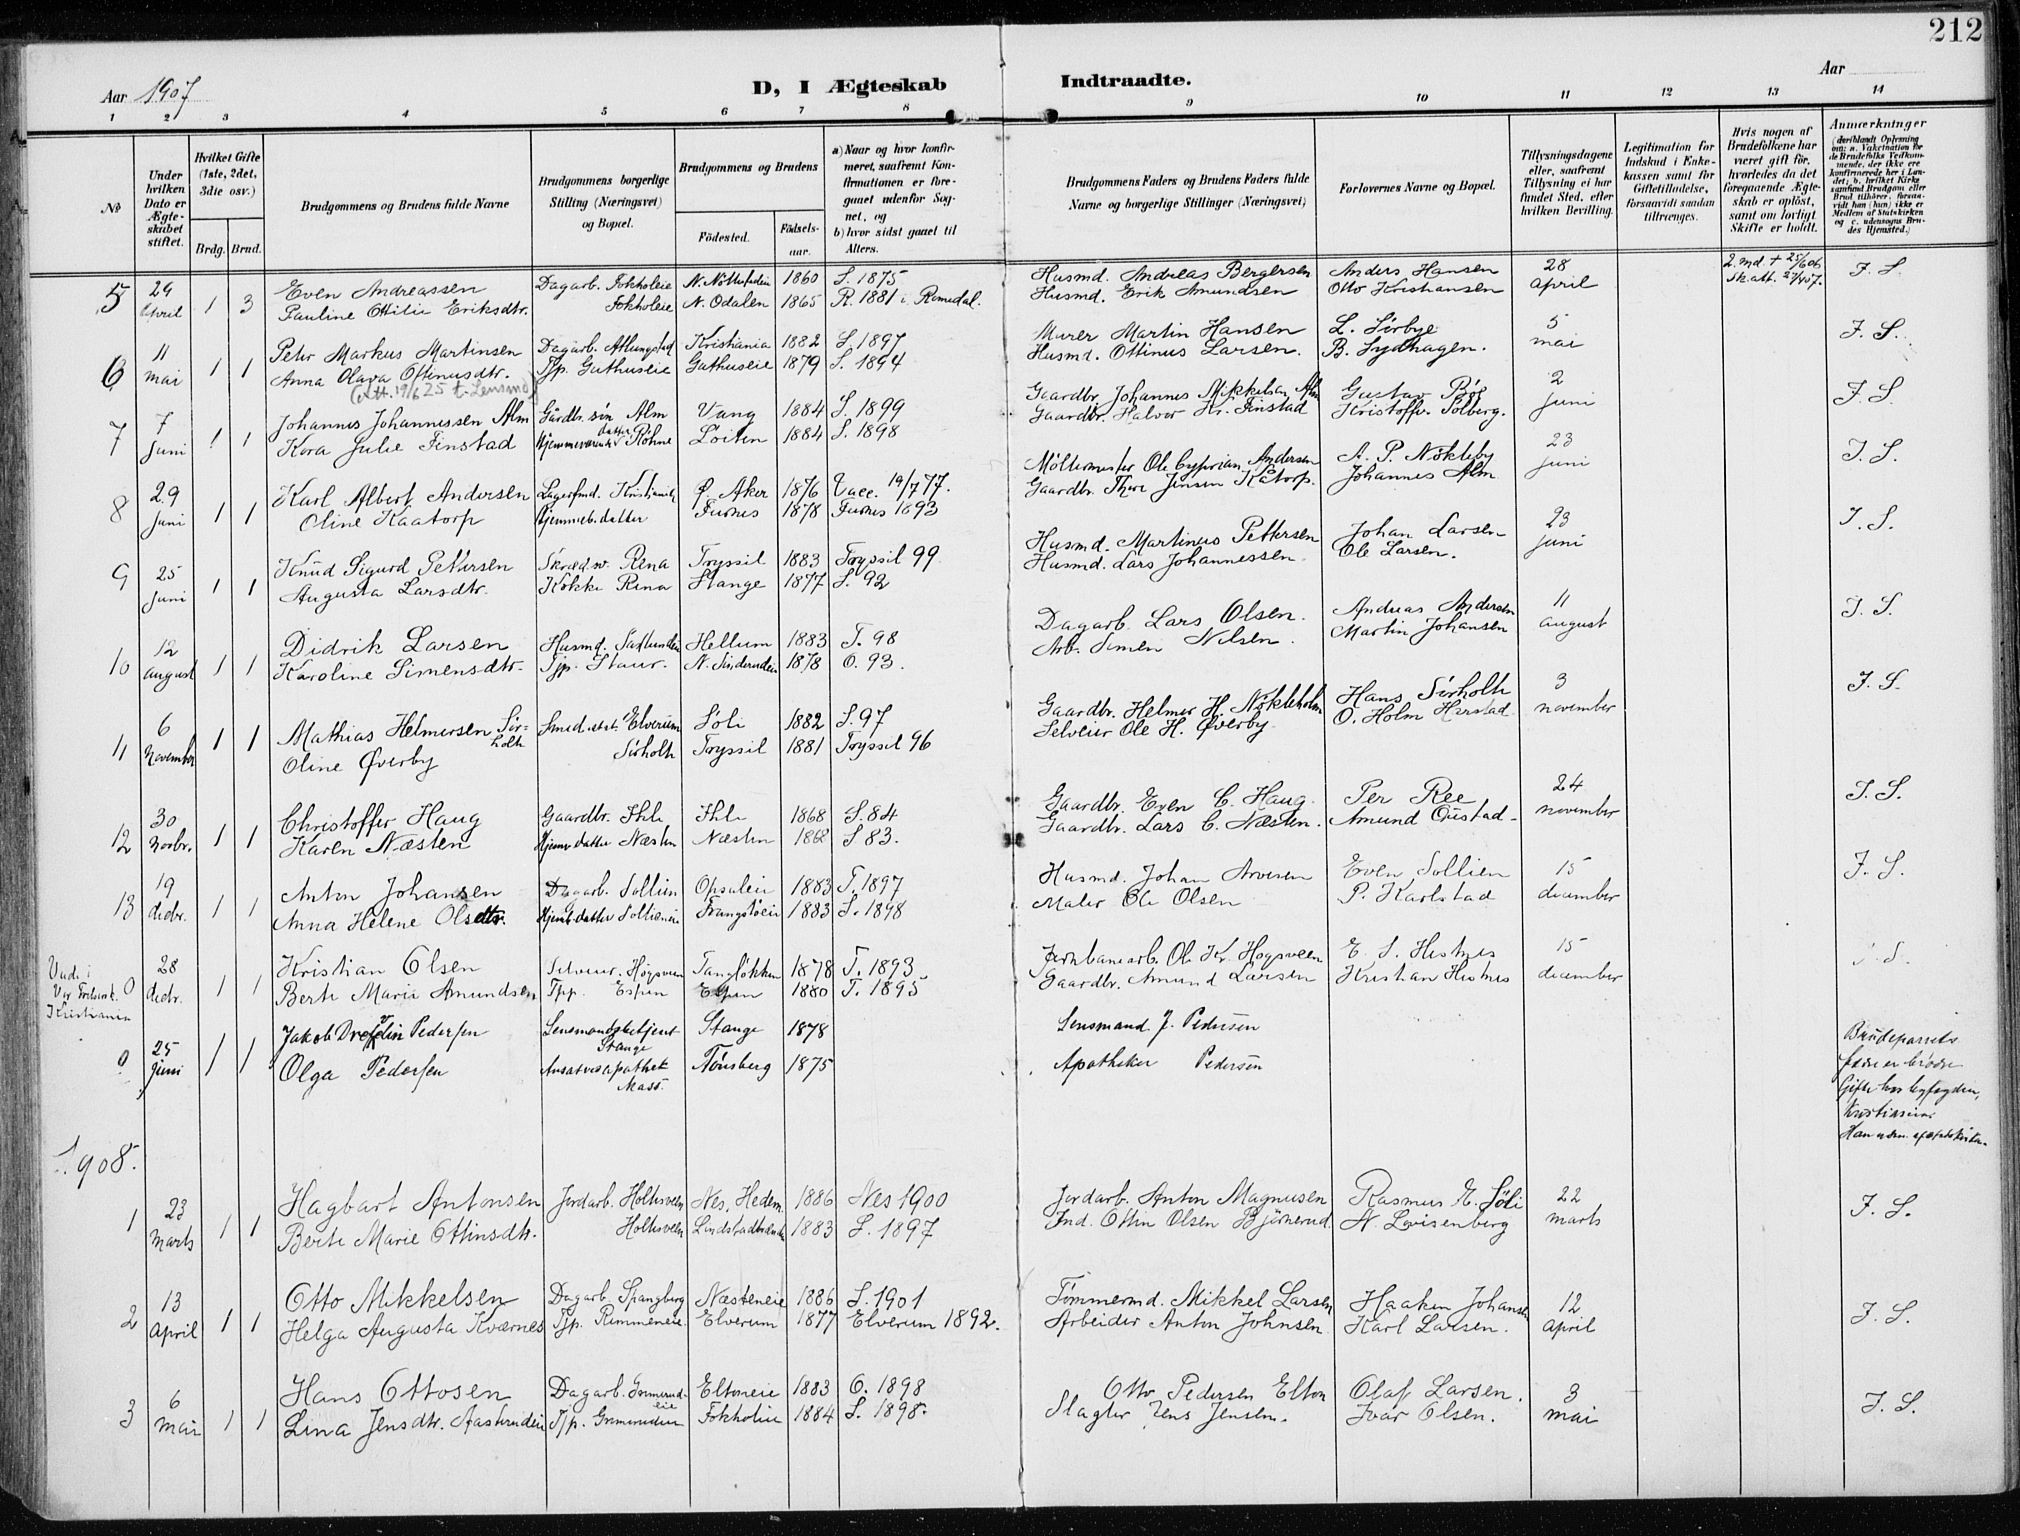 212
Aar 1907
D, I Ægteskab Indtraadte.
Aar
1 2 3 4 5 6 7 8 9 10 11 12 13 14
№
Under hvilken Dato er Ægteskabet stiftet.
Hvilket Gifte (1ste, 2det, 3die osv.)
Brdg. Brud.
Brudgommens og Brudens fulde Navne
Brudgommens borgerlige Stilling (Næringsvei) og Bopæl.
Brudgommens og Brudens
Födested. Födselsaar.
a) Naar og hvor konfirmeret, saafremt Konfirmationen er foregaaet udenfor Sognet, og
b) hvor sidst gaaet til Alters.
Brudgommens Faders og Brudens Faders fulde Navne og borgerlige Stillinger (Næringsvei)
Forlovernes Navne og Bopæl.
Tillysningsdagene eller, saafremt Tillysning ei har fundet Sted, efter hvilken Bevilling.
Legitimation for Indskud i Enkekassen samt for Giftetilladelse, forsaavidt saadan tiltrænges.
Hvis nogen af Brudefolkene har været gift för, hvorledes da det foregaaende Ægteskab er oplöst, samt om lovligt Skifte er holdt.
Anmærkninger
(deriblandt Oplysning om: a. Vakcination for de Brudefolks Vedkommende, der ikke ere konfirmerede her i Landet; b. hvilket Kirkesamfund Brudgom eller Brud tilhörer, forsaavidt han (hun) ikke er Medlem af Statskirken og c. udensogns Brudes Hjemsted.)
5 29 april 1 3 Even Andreassen Dagarb. Fokholeie N. 1860 S. 1875 Husmd. Andreas Bergersen Anders Hansen 28 april 2. md. + 25/6 06 J. S.
Pauline Otilie Eriksdtr. Fokholeie N. Odalen 1865 R. 1881 i Romedal. Husmd. Erik Amundsen Otto Kristiansen Sk.att. 27/4 07.
6 11 mai 1 1 Peter Markus Martinsen Dagarb. Atlungstad Kristiania 1882 S. 1897 Murer Martin Hansen L. Sörbye 5 mai J. S.
Anna Olava Ottinusdtr. Tjp. Guthuseie Guthuseie 1879 S. 1894 Husmd. Ottinus Larsen. B. Sydhagen.
(Att. 19/6 25 t. Lensmd)
7 7 juni 1 1 Johannes Johannessen Alm Gårdbr. sön Alm Vang 1884 S. 1899 Gaardbr. Johannes Mikkelsen Alm Gustav Böe 2 juni J. S.
Kora Julie Finstad Hjemmeværende datter Röhne Löiten 1884 S. 1898 Gaardbr. Halvor Kr. Finstad Kristoffer Solberg.
8 29 juni 1 1 Karl Albert Andersen Lagerfmd. Kristiania Ø. Aker 1876 Vacc. 19/7 77. Möllemester Ole Cyprian Andersen A. P. Nökleby 23 juni J. S.
Oline Kaatorp Hjemmeb. datter Furnes 1878 Furnes 1893 Gaardbr. Thore Jensen Kåtorp. Johannes Alm
9 25 juni 1 1 Knud Sigurd Pettersen Skrædsv. Rena Tryssil 1883 Tryssil 99 Husmd. Martinus Pettersen Johan Larsen 23 juni J. S.
Augusta Larsdtr. Kokke Rena Stange 1877 S. 92 Husmd. Lars Johannessen. Ole Larsen.
10 12 august 1 1 Didrik Larsen Husmd. Saxlundeie Hellum 1883 T. 98 Dagarb. Lars Olsen. Andreas Andersen 11 august J. S.
Karoline Simensdtr. Tjp. Staur. N. 1878 O. 93. Arb. Simen Nilsen. Martin Johansen
11 6 november 1 1 Mathias Helmersen Sörholth Smed Elverum Söli 1882 S. 97 Gaardbr. Helmer H. Nökleholm Hans Sörholth 3 november J. S.
Oline Øverby Sörholth Tryssil 1881 Tryssil 96 Selveier Ole H. Øverby. O. Holm Harstad
12 30 novbr. 1 1 Christoffer Haug Gaardbr. Ihle Ihle 1868 S. 84 Gaardbr. Even C. Haug Per Ree 24 november J. S.
Karen Næsten Hjemv. datter Næsten Næsten 1868 S 83. Gaardbr. Lars C. Næsten. Amund Oustad
13 19 decbr. 1 1 Anton Johansen Dagarb. Sollien Opsaleie 1883 T. 1897 Husmd. Johan Arvesen Even Sollien 15 december J. S.
Anna Helene Olsdtr. Hjemb. datter Sollieneie Frangstöeie 1883 S. 1898 Maler Ole Olsen P. Karlstad
Viede i Kristiania 0 28 decbr. 1 1 Kristian Olsen Selveier. Högsveen Tangløkken 1878 T. 1893 Jernbanearb. Ole Kr. Hogsveen E. S. Hestnes 15 december J. S.
Berte Marie Amundsen Tpp. Espen Espen 1880 T. 1895 Gaardbr. Amund Larsen Kristian Hestnes
0 25 juni 1 1 Jakob Drefvelin Pedersen Lensmandsbetjent Stange Stange 1878 Lensmand J. Pedersen Brudeparrets fædre er brödre
Olga Pedersen Tönsberg 1875 Apotheker Pedersen Gifte hos byfogden, Kristiania
1908.
1 23 marts 1 1 Hagbart Antonsen Jordarb. Holtsveen Nes, Hedem. 1886 Nes 1900 Jordarb. Anton Magnusen Rasmus E. Söli 22 marts J. S.
Berte Marie Ottinsdtr. Holtsveen 1883 S. 1897 Ind. Ottin Olsen Björnerud N. Lovisenberg
2 13 april 1 1 Otto Mikkelsen Dagarb. Spangberg Næsteneie 1886 S. 1901 Tömmermd. Mikkel Larsen Haaken Johansen 12 april J. S.
Helga Augusta Kværnes Tjp. Remmeneie. Elverum 1877 Elverum 1892. Arbeider Anton Johnsen Karl Larsen.
3 6 mai 1 1 Hans Ottosen Dagarb. Grimerudeie Eltoneie 1883 O. 1898 Otto Pedersen Elton Olaf Larsen. 3 mai J. S.
Lina Jensdtr. Aasterudeie Tjp. Grimerudeie Fokholeie 1884 S. 1898. Slagter Jens Jensen. Ivar Olsen.